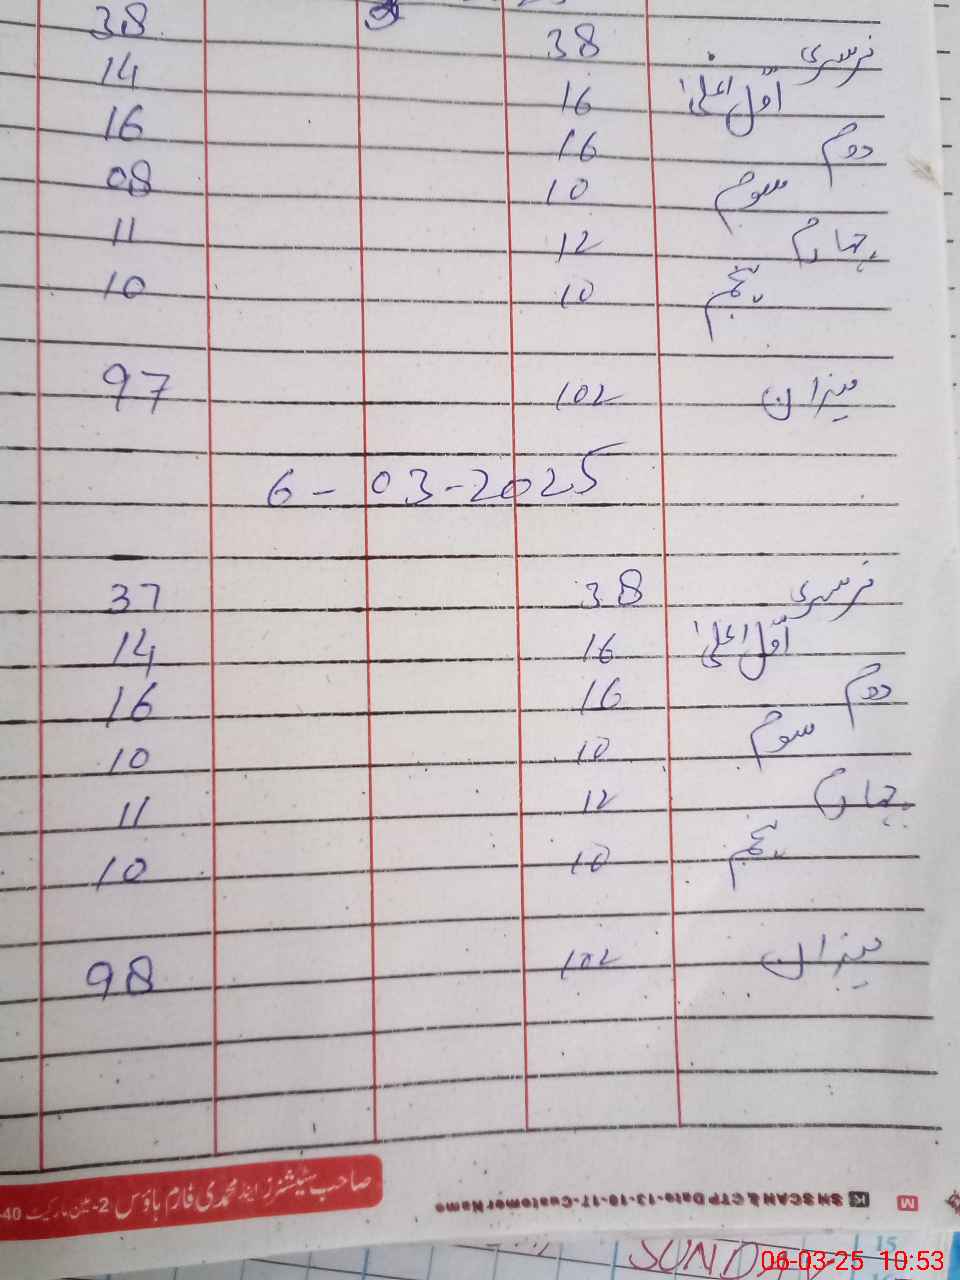 نرسری 38 38
اوّل اعلیٰ 16 14
دوم 16 16
سوم 10 08
چہارم 12 11
پنجم 10 10
میزان 102 97
6-03-2025
نرسری 38 37
اوّل اعلیٰ 16 14
دوم 16 16
سوم 10 10
چہارم 12 11
پنجم 10 10
میزان 102 98
صاحب سٹیشنرز اینڈ محمدی فارم ہاؤس 2-مین مارکیٹ 40-
M K SH SCAN & CTP Date-13-10-17-Customer Name
15
SUND
06-03-25 10:53